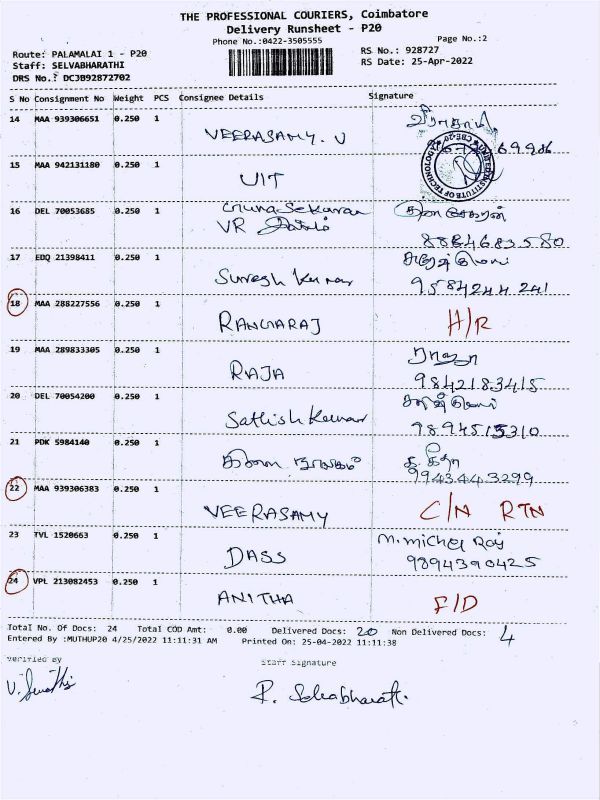 THE PROFESSIONAL COURIERS, Coimbatore
Delivery Runsheet - P20
Phone No.:0422-3505555
Page No.:2
Route: PALAMALAI 1 - P20
RS No.: 928727
Staff: SELVABHARATHI
RS Date: 25-Apr-2022
DRS No.: DCJB92872702
S No Consignment No Weight PCS Consignee Details Signature
14 MAA 939306651 0.250 1
VEERASAMY. V
15 MAA 942131180 0.250 1
UIT
16 DEL 70053685 0.250 1
VR
8884683580
17 EDQ 21398411 0.250 1
Suresh Kumar 9584244241
18 MAA 288227556 0.250 1
RANGARAJ H/R
19 MAA 289833305 0.250 1 ராஜா
RAJA 9842183415
20 DEL 70054200 0.250 1
Sathish Kumar 9894515310
21 PDK 5984140 0.250 1
கிளை நூலகம் த. கீதா
9943443299
22 MAA 939306383 0.250 1
VEERASAMY C/N RTN
23 TVL 1520663 0.250 1 M. Michel Raj
DASS 9894390425
24 VPL 213082453 0.250 1
ANITHA F/D
Total No. Of Docs: 24 Total COD Amt: 0.00 Delivered Docs: 20 Non Delivered Docs: 4
Entered By :MUTHUP20 4/25/2022 11:11:31 AM Printed On: 25-04-2022 11:11:38
Verified By Staff Signature
P. Selvabharathi